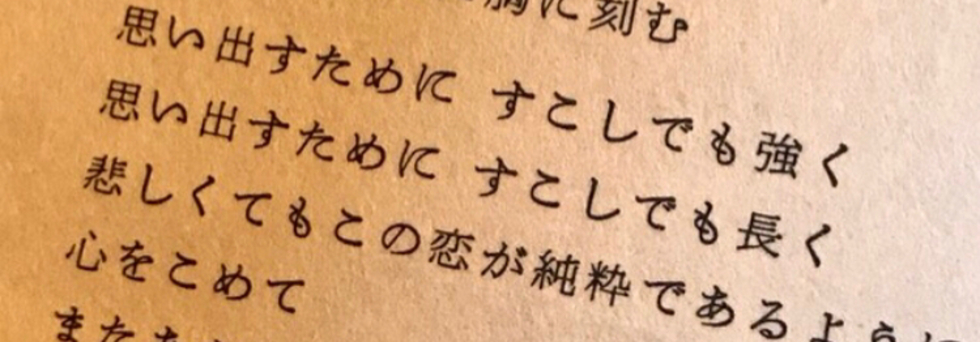 胸に刻む
思い出すために すこしでも強く
思い出すために すこしでも長く
悲しくてもこの恋が純粋であるように
心をこめて
また